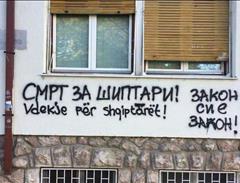 СМРТ ЗА ШИПТАРИ!
Vdekje për shqiptarët!
ЗАКОН
СИЕ
ЗАКОН!